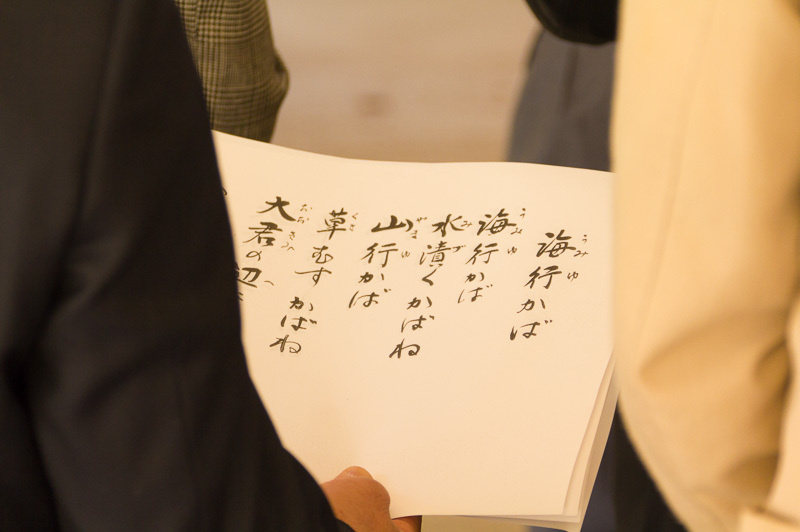 海行かば
海行かば
水漬くかばね
山行かば
草むすかばね
大君の辺